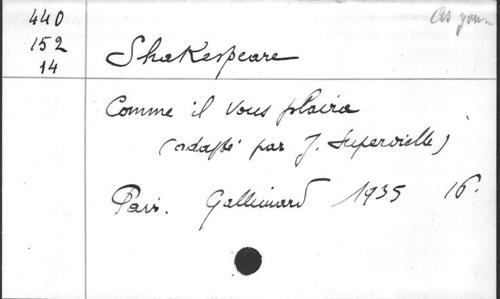 440
As you...
152
14
Shakespeare
Comme il vous plaira
(adapté par J. Supervielle)
Paris. Gallimard 1935 16.